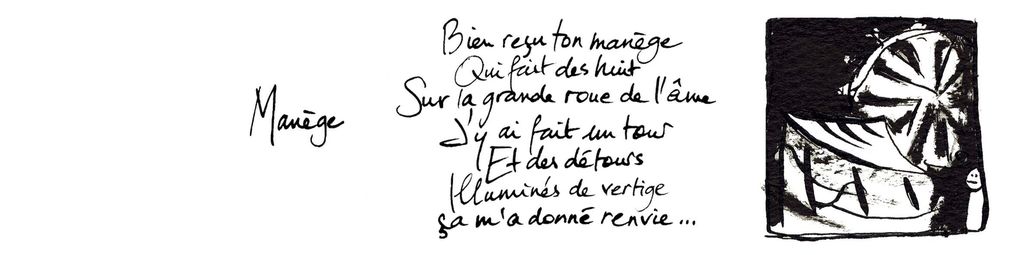 Manège
Bien reçu ton manège
Qui fait des huit
Sur la grande roue de l'âme
J'y ai fait un tour
Et des détours
Illuminés de vertige
ça m'a donné renvie...